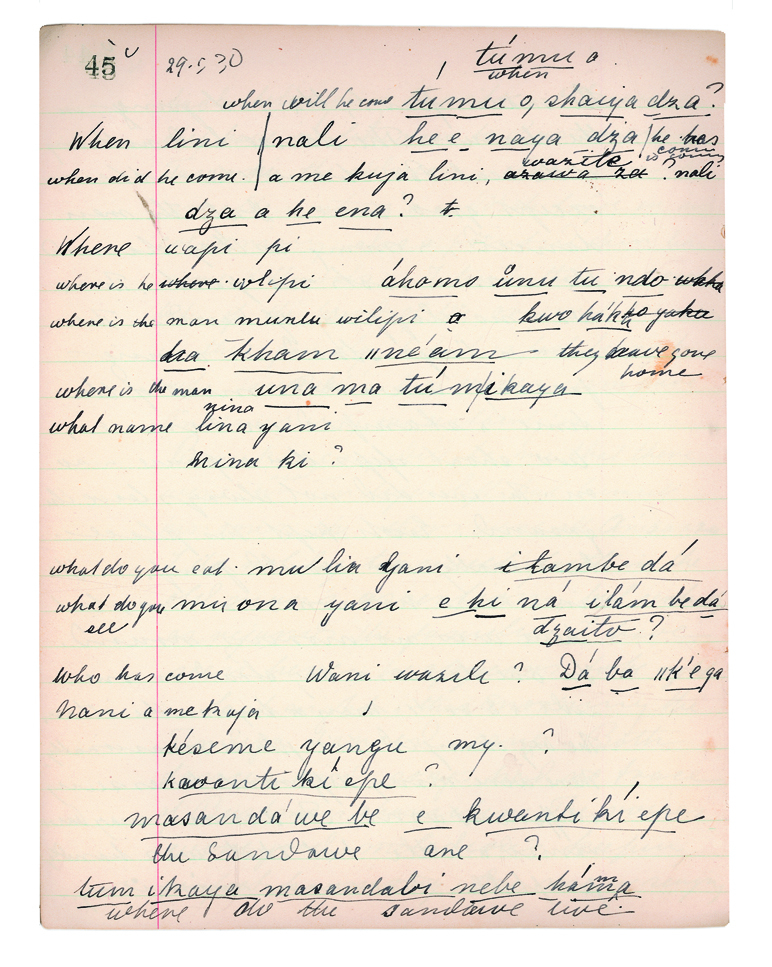 45 29.5.30 túmu o
when
when will he come túmu o, shaiya dza?
When lini / nali he e naya dza / he has
coming
is coming
wazile
when did he come. a me kuja lini, azawa za ? nali
dza a he ena? t.
Where wapi pi
where is he where wilipi áhomo ùnu tu ndo
where is the man muntu wilipi a kwo hákk
kham "néám they have gone
home
where is the man una ma túm/ikaya
nina
what name lina yani
nina ki ?
what do you eat. mu lia yani itambe dá
what do you mirona yani e ki ná ilám be dá
see dzaito ?
who has come Wani wazile ? Dá ba "k'e ga
Nani a me kuja
késéme yangu my. ?
kwanti kí epe ?
masandáwe be e kwanti kí epe
the Sandawe are ?
tum ikaya masandabi nebe háma
where do the sandawe live.